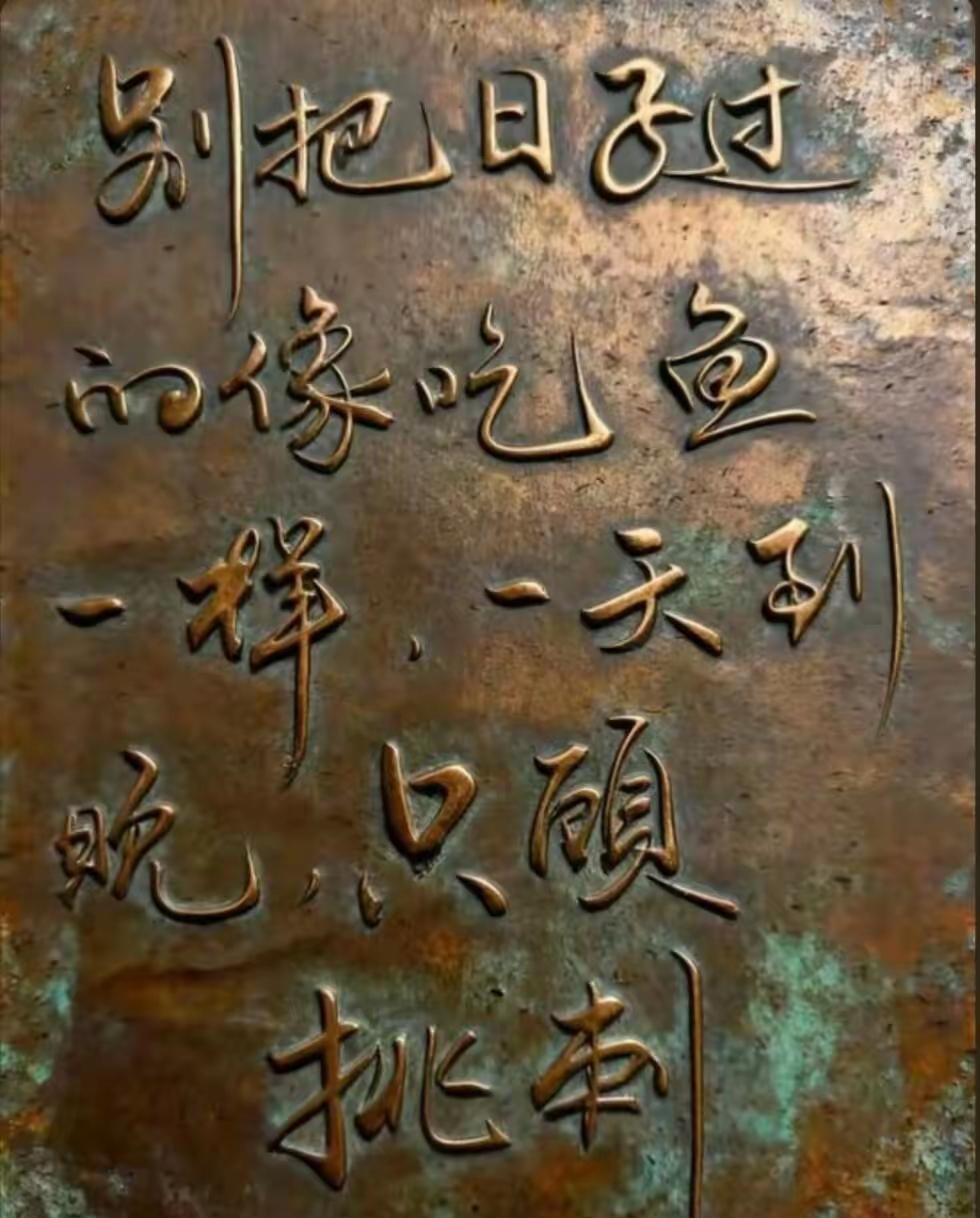 别把日子过
的像吃鱼
一样，一天到
晚，只顾
挑刺